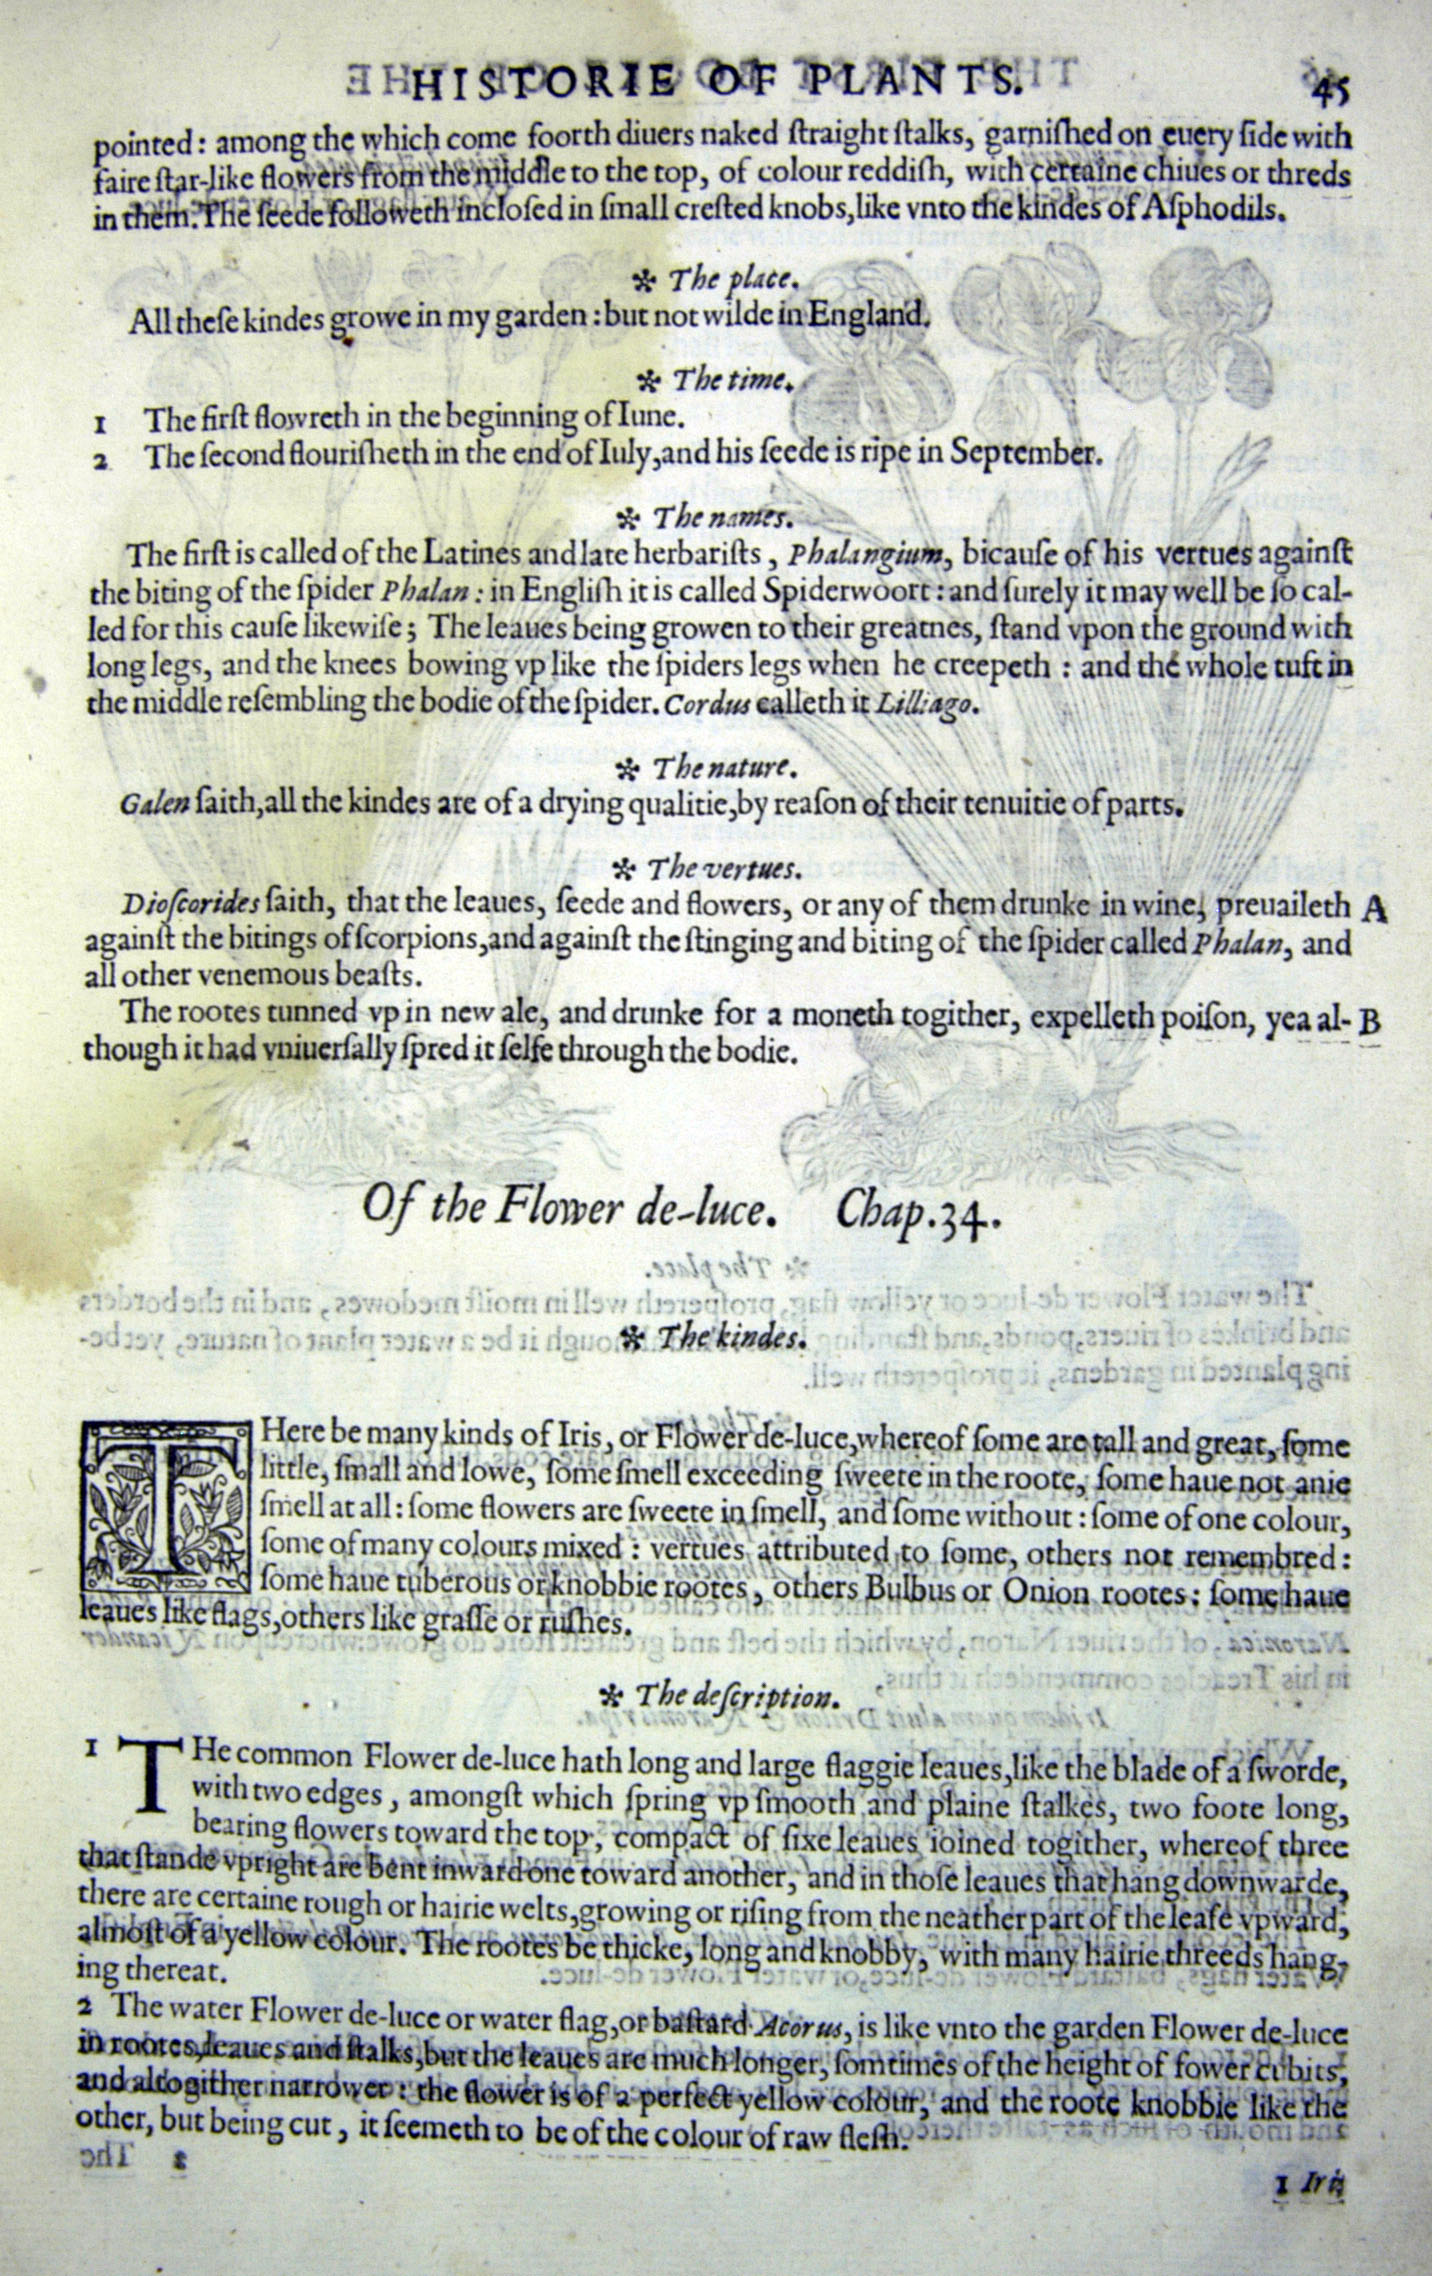 HISTORIE OF PLANTS. 45
pointed: among the which come foorth diuers naked ſtraight ſtalks, garniſhed on euery ſide with
faire ſtar-like flowers from the middle to the top, of colour reddiſh, with certaine chiues or threds
in them. The ſeede followeth incloſed in ſmall creſted knobs, like vnto the kindes of Aſphodils.
✻ The place.
All theſe kindes growe in my garden: but not wilde in England.
✻ The time.
1 The firſt flowreth in the beginning of Iune.
2 The ſecond flouriſheth in the end of Iuly, and his ſeede is ripe in September.
✻ The names.
The firſt is called of the Latines and late herbariſts, Phalangium, bicauſe of his vertues againſt
the biting of the ſpider Phalan: in Engliſh it is called Spiderwoort: and ſurely it may well be ſo cal-
led for this cauſe likewiſe; The leaues being growen to their greatnes, ſtand vpon the ground with
long legs, and the knees bowing vp like the ſpiders legs when he creepeth: and the whole tuft in
the middle reſembling the bodie of the ſpider. Cordus calleth it Lilliago.
✻ The nature.
Galen ſaith, all the kindes are of a drying qualitie, by reaſon of their tenuitie of parts.
✻ The vertues.
Dioſcorides ſaith, that the leaues, ſeede and flowers, or any of them drunke in wine, preuaileth A
againſt the bitings of ſcorpions, and againſt the ſtinging and biting of the ſpider called Phalan, and
all other venemous beaſts.
The rootes tunned vp in new ale, and drunke for a moneth togither, expelleth poiſon, yea al- B
though it had vniuerſally ſpred it ſelfe through the bodie.
Of the Flower de-luce. Chap. 34.
✻ The kindes.
THere be many kinds of Iris, or Flower de-luce, whereof ſome are tall and great, ſome
little, ſmall and lowe, ſome ſmell exceeding ſweete in the roote, ſome haue not anie
ſmell at all: ſome flowers are ſweete in ſmell, and ſome without: ſome of one colour,
ſome of many colours mixed: vertues attributed to ſome, others not remembred:
ſome haue tuberous or knobbie rootes, others Bulbus or Onion rootes: ſome haue
leaues like flags, others like graſſe or ruſhes.
✻ The deſcription.
1 THe common Flower de-luce hath long and large flaggie leaues, like the blade of a ſworde,
with two edges, amongſt which ſpring vp ſmooth and plaine ſtalkes, two foote long,
bearing flowers toward the top, compact of ſixe leaues ioined togither, whereof three
that ſtande vpright are bent inward one toward another, and in thoſe leaues that hang downwarde,
there are certaine rough or hairie welts, growing or riſing from the neather part of the leafe vpward,
almoſt of a yellow colour. The rootes be thicke, long and knobby, with many hairie threeds hang-
ing thereat.
2 The water Flower de-luce or water flag, or baſtard Acorus, is like vnto the garden Flower de-luce
in rootes, leaues and ſtalks, but the leaues are much longer, ſomtimes of the height of fower cubits,
and altogither narrower: the flower is of a perfect yellow colour, and the roote knobbie like the
other, but being cut, it ſeemeth to be of the colour of raw fleſh.
1 Iris